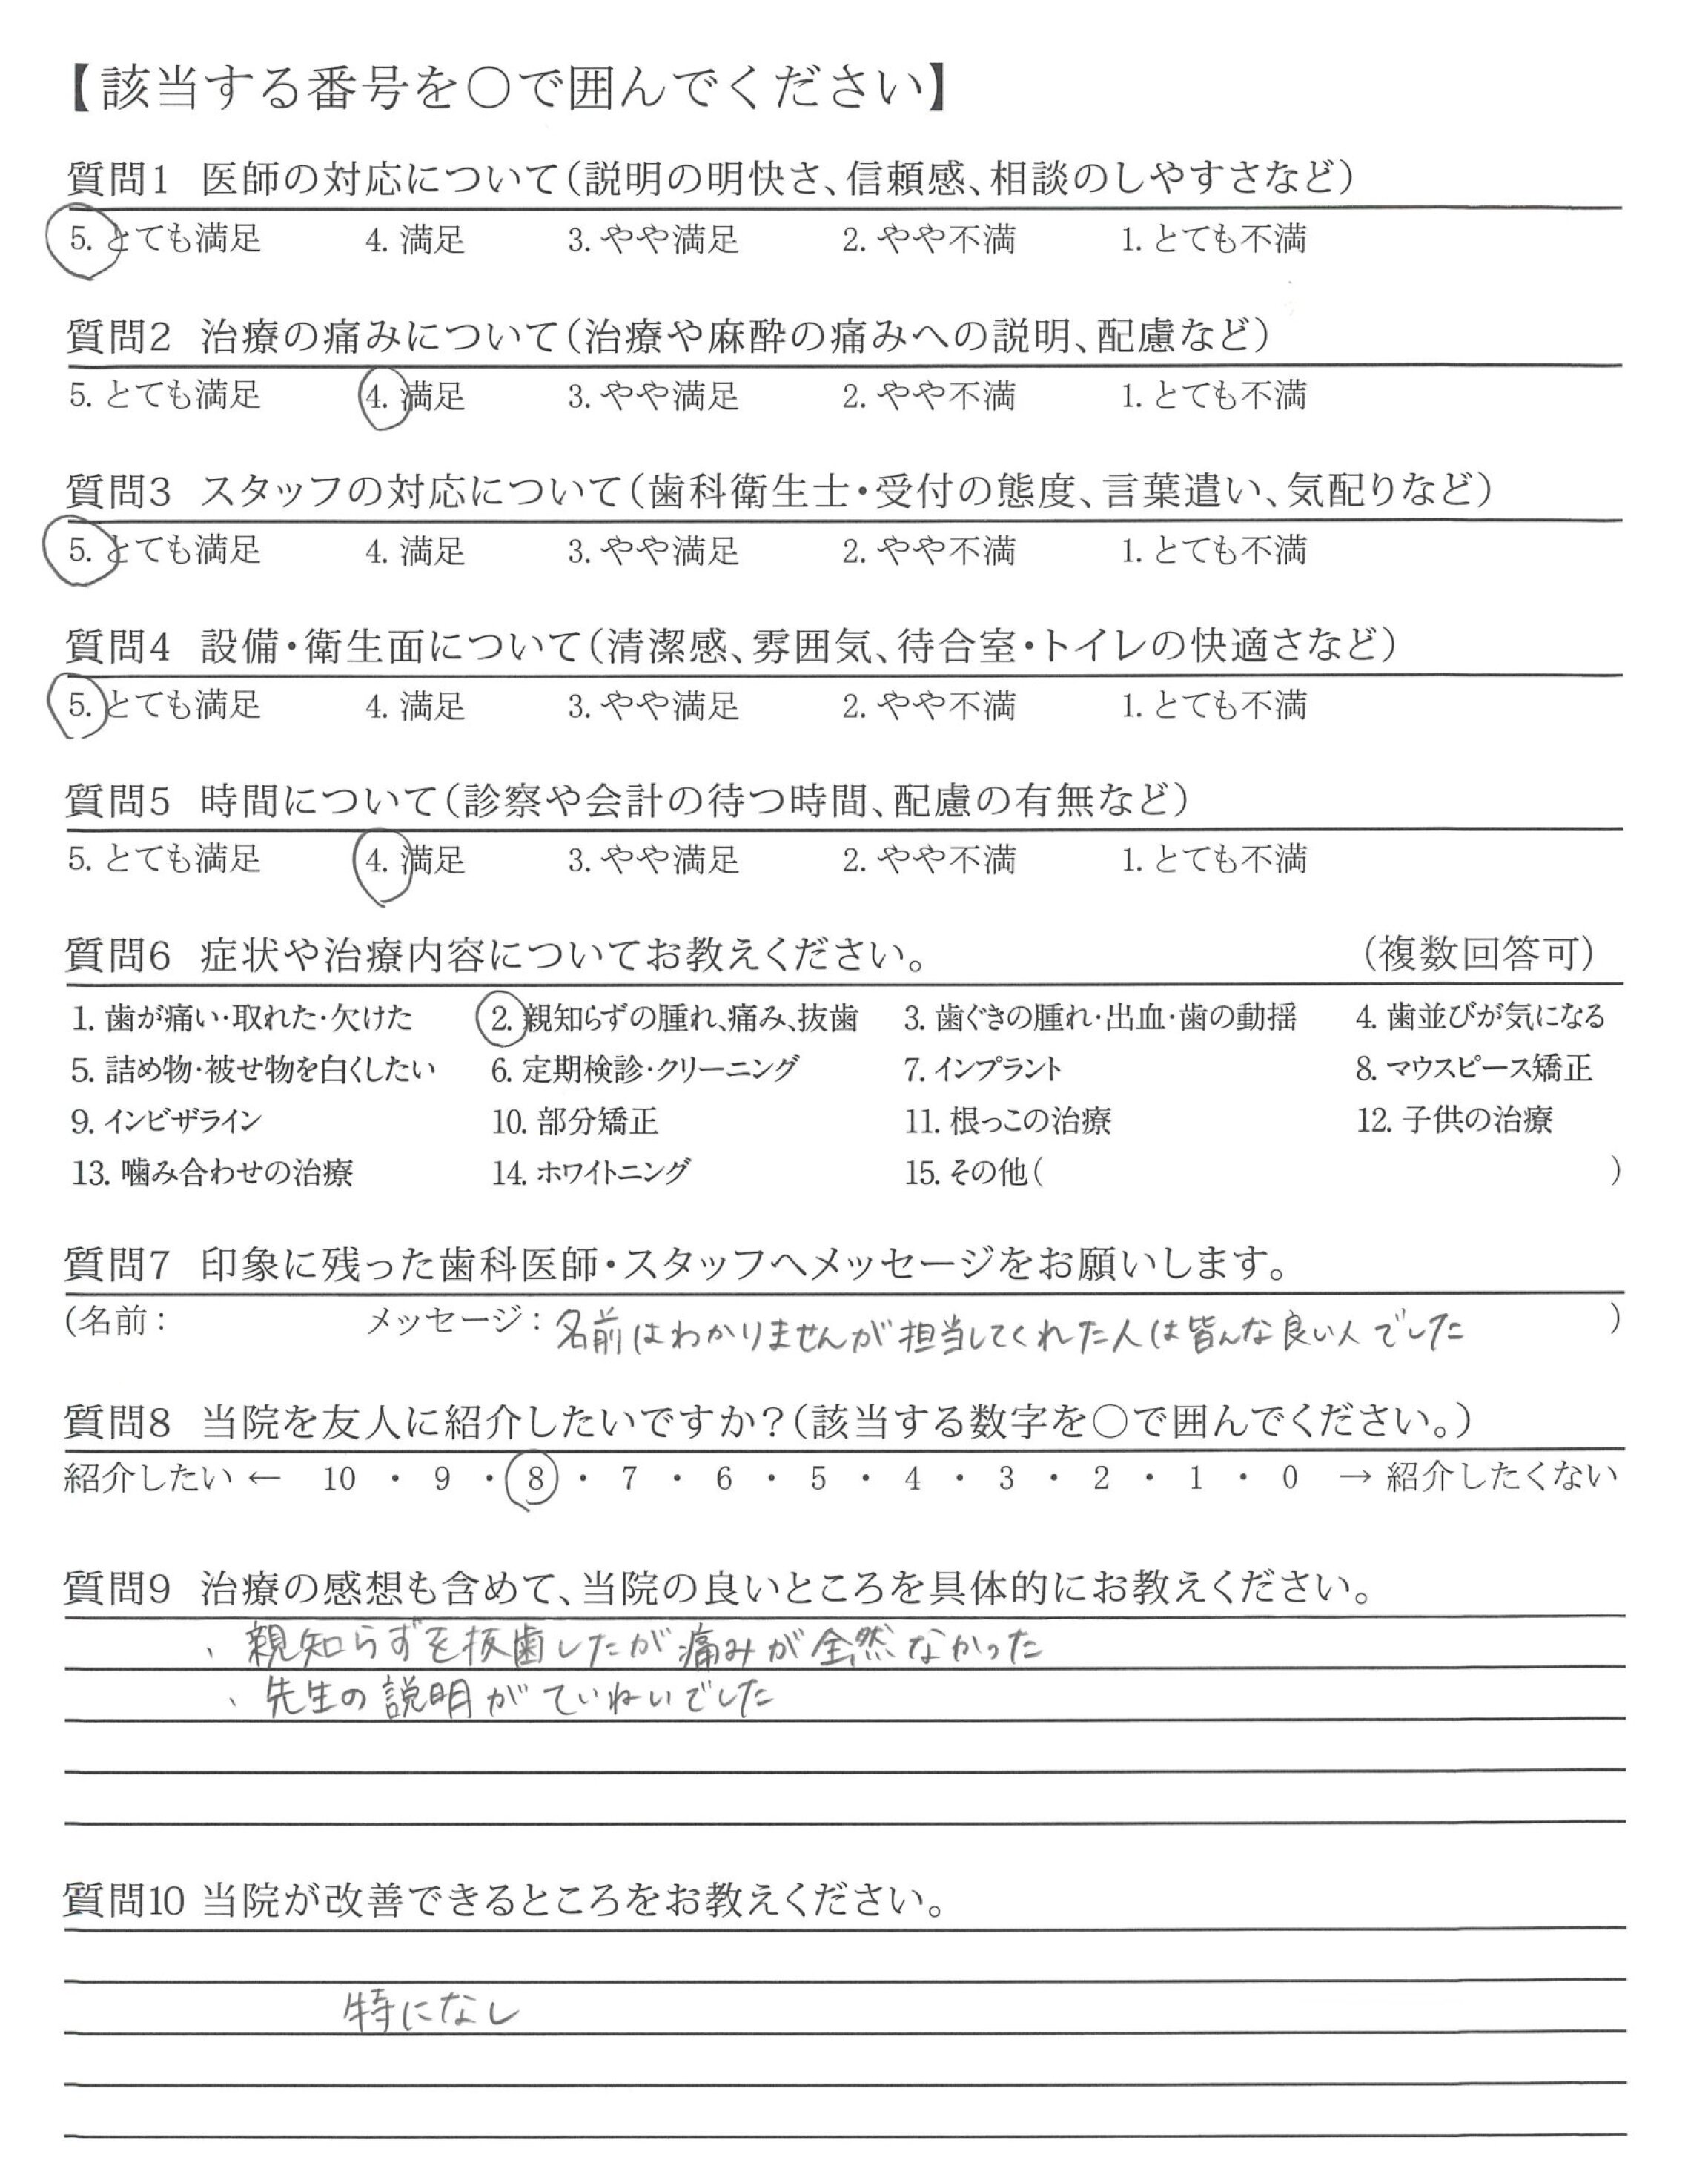 【該当する番号を○で囲んでください】
質問1 医師の対応について(説明の明快さ、信頼感、相談のしやすさなど)
5. とても満足 4. 満足 3. やや満足 2. やや不満 1. とても不満
質問2 治療の痛みについて(治療や麻酔の痛みへの説明、配慮など)
5. とても満足 4. 満足 3. やや満足 2. やや不満 1. とても不満
質問3 スタッフの対応について(歯科衛生士・受付の態度、言葉遣い、気配りなど)
5. とても満足 4. 満足 3. やや満足 2. やや不満 1. とても不満
質問4 設備・衛生面について(清潔感、雰囲気、待合室・トイレの快適さなど)
5. とても満足 4. 満足 3. やや満足 2. やや不満 1. とても不満
質問5 時間について(診察や会計の待つ時間、配慮の有無など)
5. とても満足 4. 満足 3. やや満足 2. やや不満 1. とても不満
質問6 症状や治療内容についてお教えください。 (複数回答可)
1. 歯が痛い・取れた・欠けた 2. 親知らずの腫れ、痛み、抜歯 3. 歯ぐきの腫れ・出血・歯の動揺 4. 歯並びが気になる
5. 詰め物・被せ物を白くしたい 6. 定期検診・クリーニング 7. インプラント 8. マウスピース矯正
9. インビザライン 10. 部分矯正 11. 根っこの治療 12. 子供の治療
13. 噛み合わせの治療 14. ホワイトニング 15. その他( )
質問7 印象に残った歯科医師・スタッフへメッセージをお願いします。
(名前: メッセージ: 名前はわかりませんが担当してくれた人は皆んな良い人でした )
質問8 当院を友人に紹介したいですか?(該当する数字を○で囲んでください。)
紹介したい ← 10 ・ 9 ・ 8 ・ 7 ・ 6 ・ 5 ・ 4 ・ 3 ・ 2 ・ 1 ・ 0 → 紹介したくない
質問9 治療の感想も含めて、当院の良いところを具体的にお教えください。
、親知らずを抜歯したが痛みが全然なかった
、先生の説明がていねいでした
質問10 当院が改善できるところをお教えください。
特になし